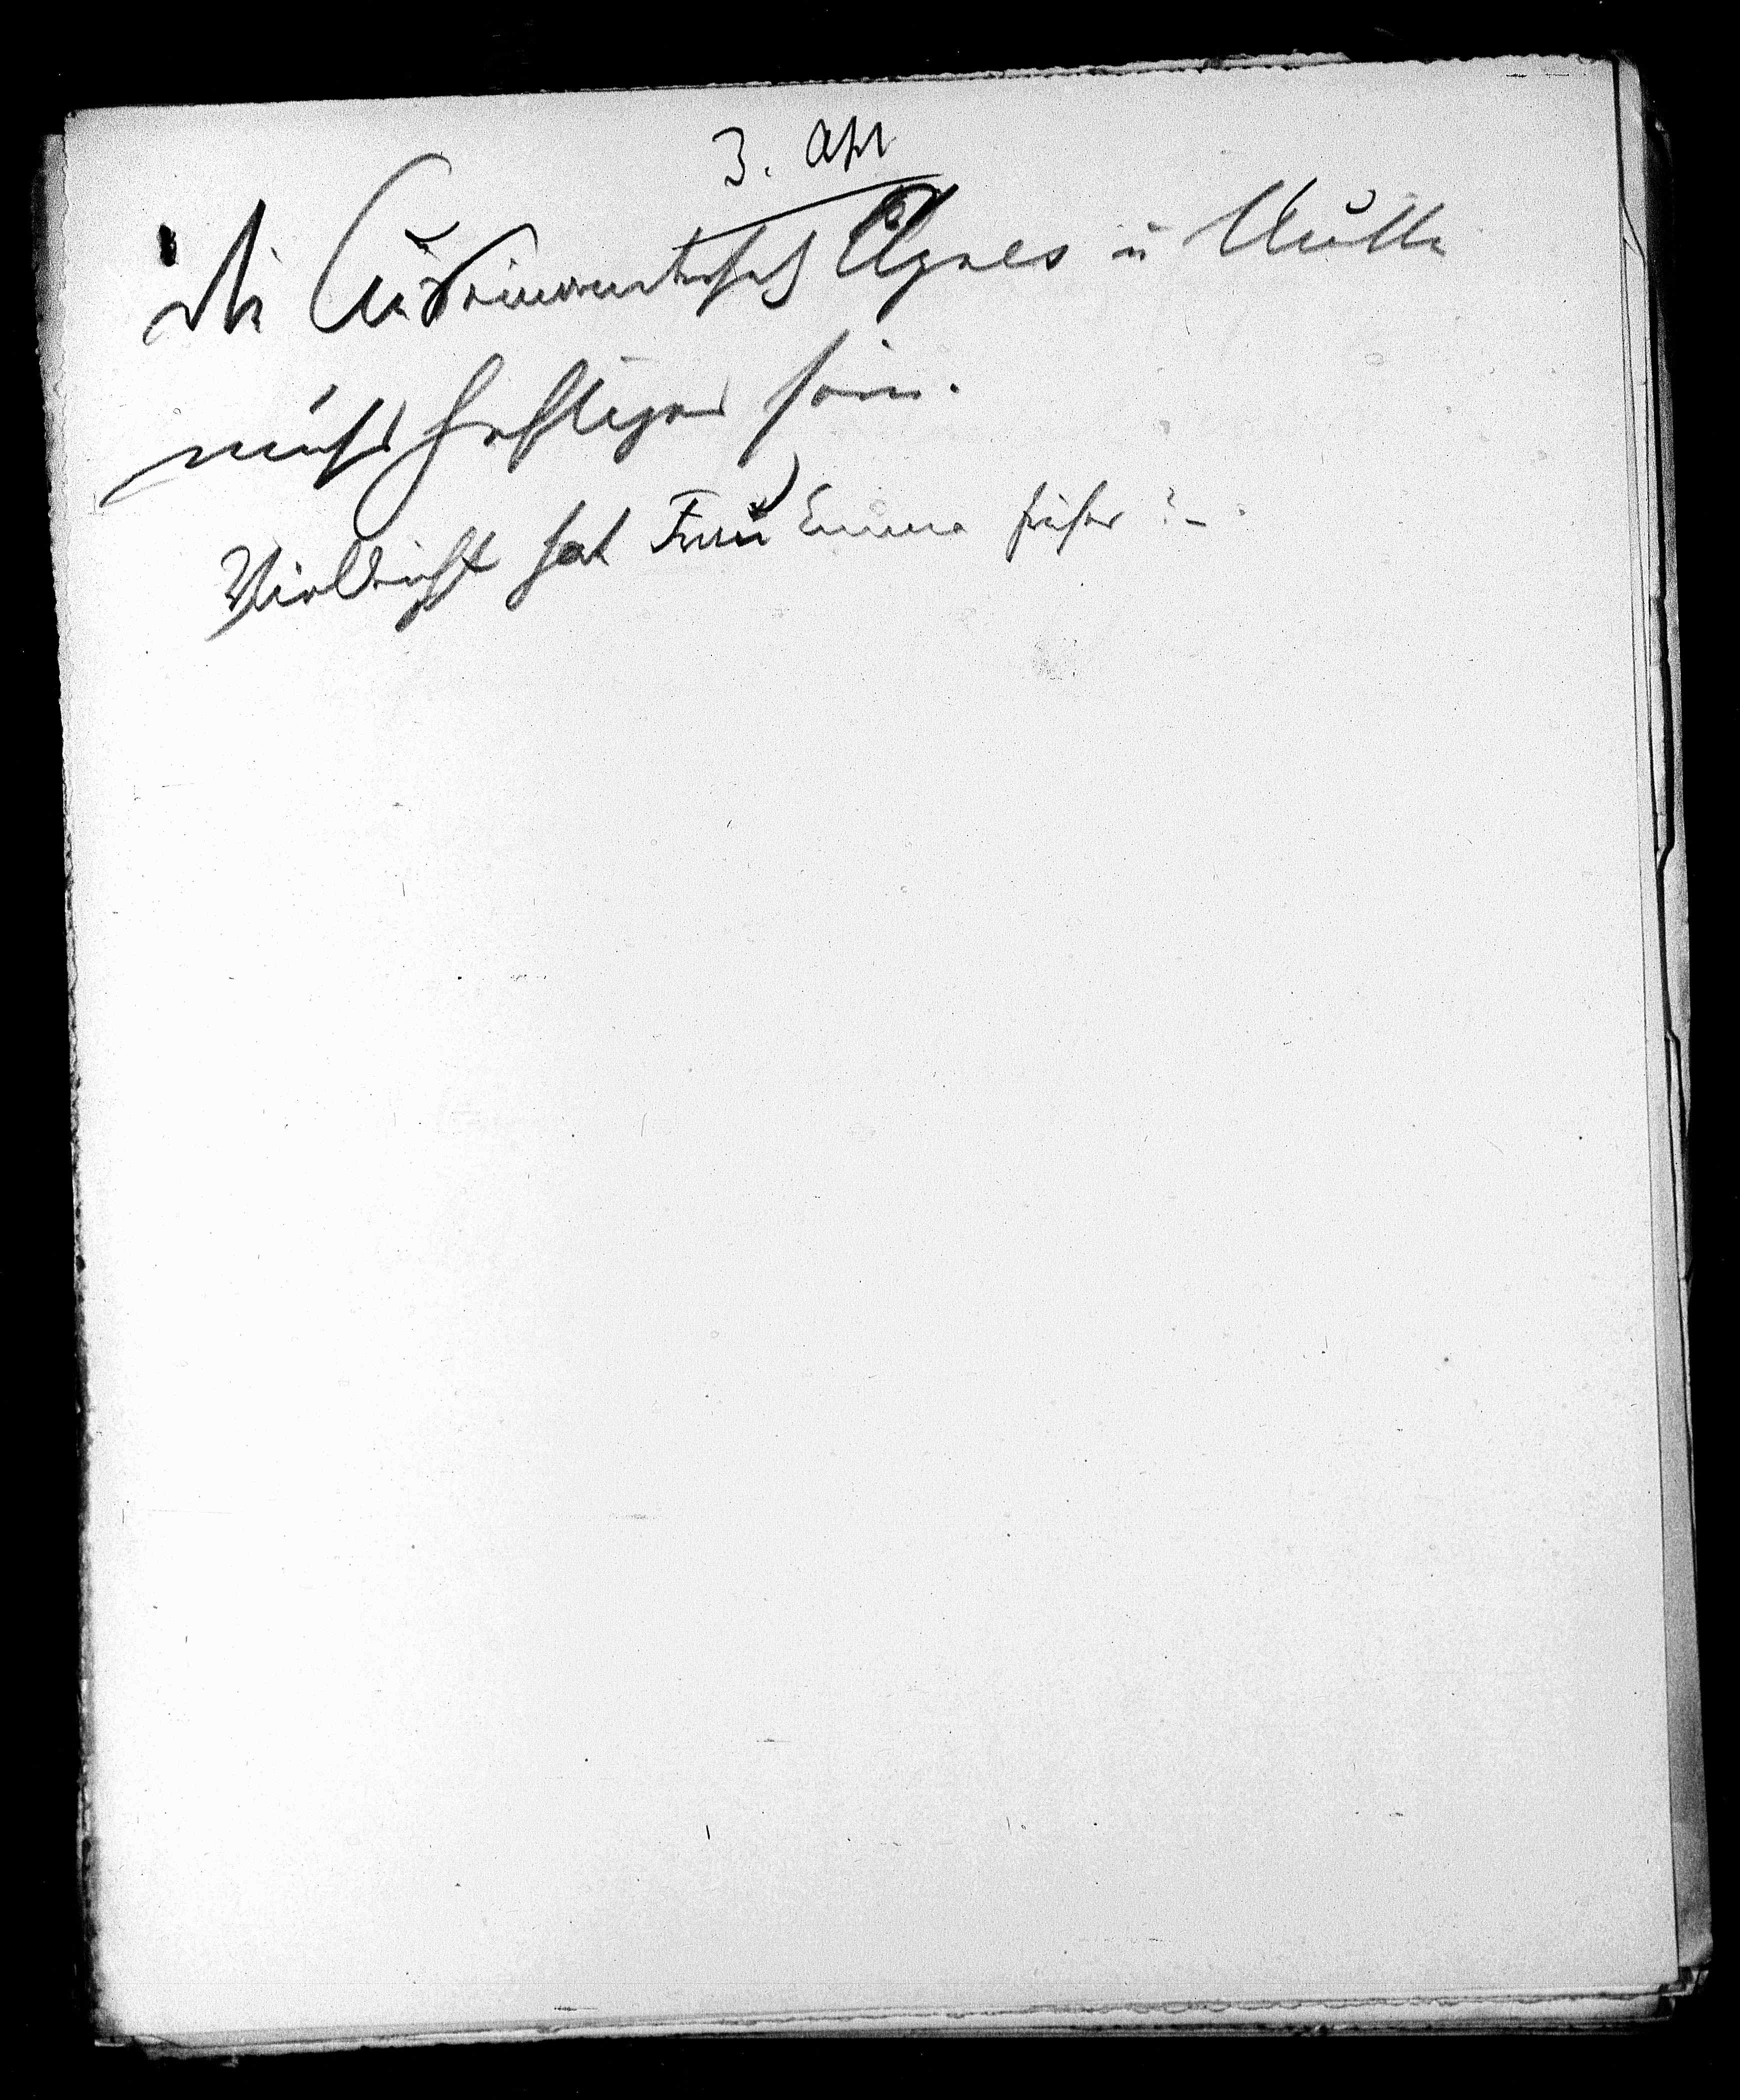 3. Akt
Die Auseinandersetz Agnes u Mutter
muß heftiger sein.
Vielleicht hat Frau Emma früher ? –